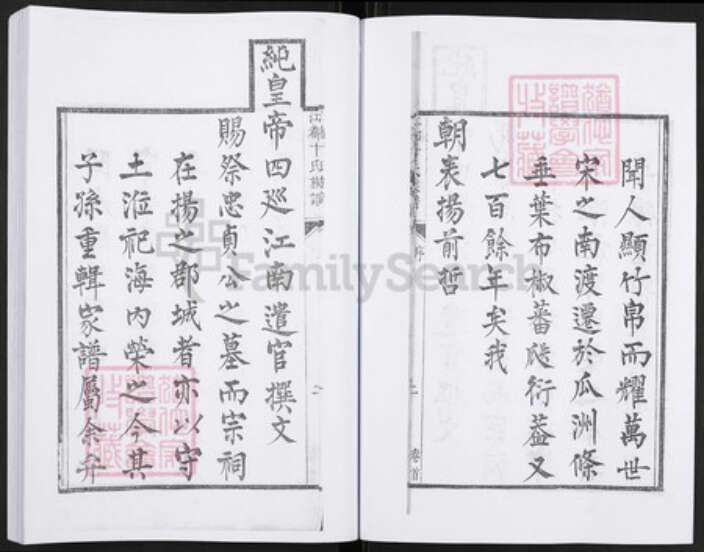 聞人顯竹帛而耀萬世
宋之南渡遷於瓜洲條
垂葉布椒蕃瓞衍蓋又
七百餘年矣我
朝表揚前哲
序
卷首
純皇帝四巡江南遣官撰文
賜祭忠貞公之墓而宗祠
在揚之郡城者亦以守
土涖祀海內榮之今其
子孫重輯家譜屬余弁
FamilySearch